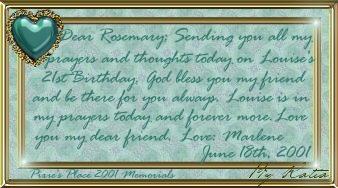 Dear Rosemary; Sending you all my
prayers and thoughts today on Louise's
21st Birthday. God bless you my friend
and be there for you always. Louise is in
my prayers today and forever more. Love
you my dear friend. Love: Marlene
June 18th, 2001
Pixie's Place 2001 Memorials
By Katia